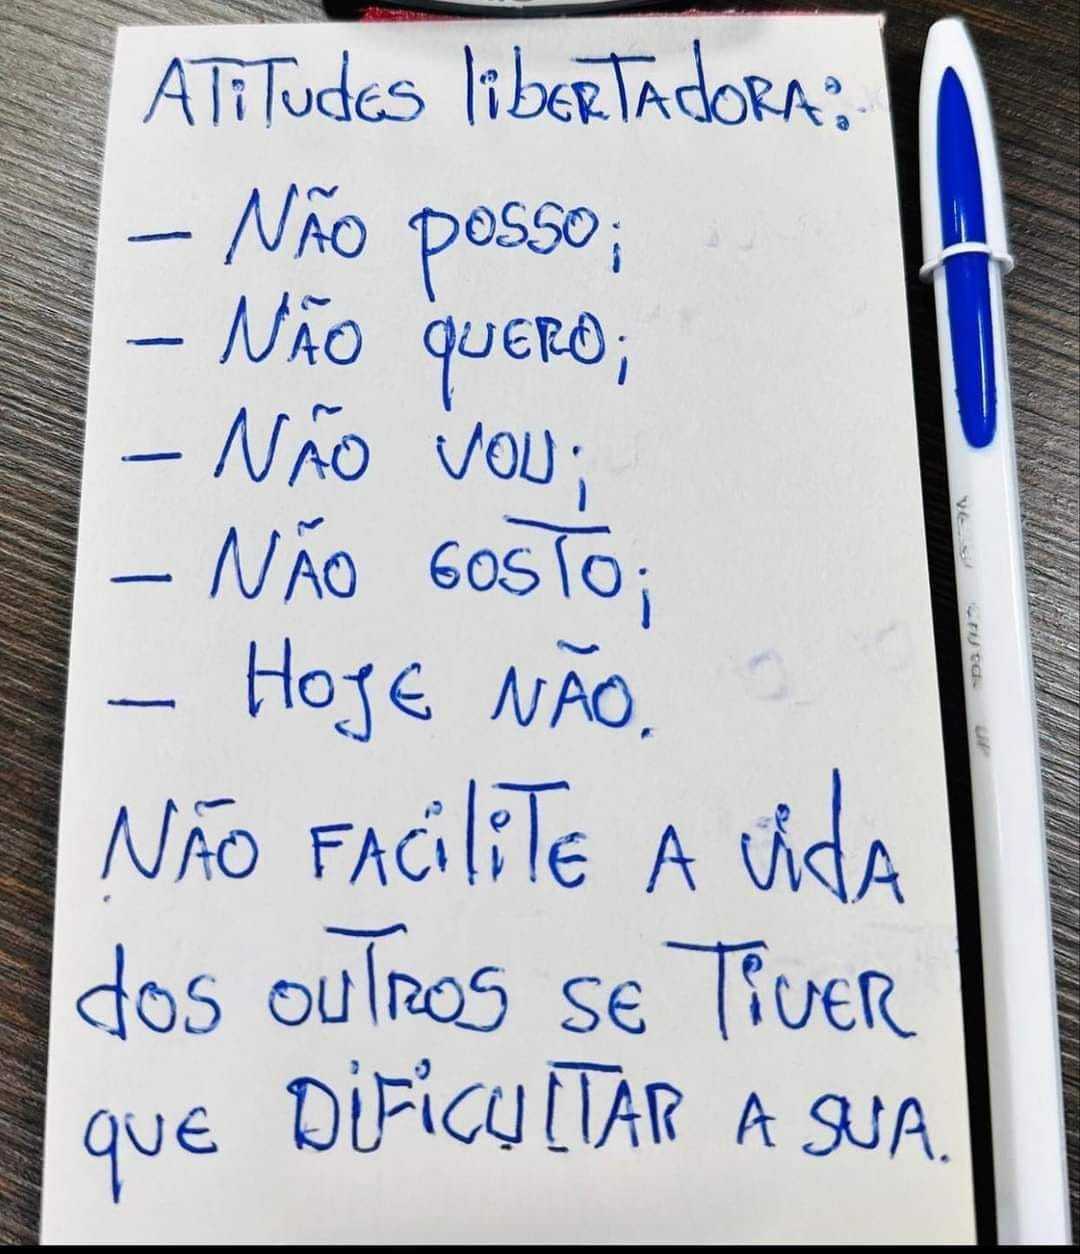 Atitudes libertadora:
- Não posso;
- Não quero;
- Não vou;
- Não gosto;
- Hoje não.
Não facilite a vida
dos outros se tiver
que DIFICULTAR a sua.